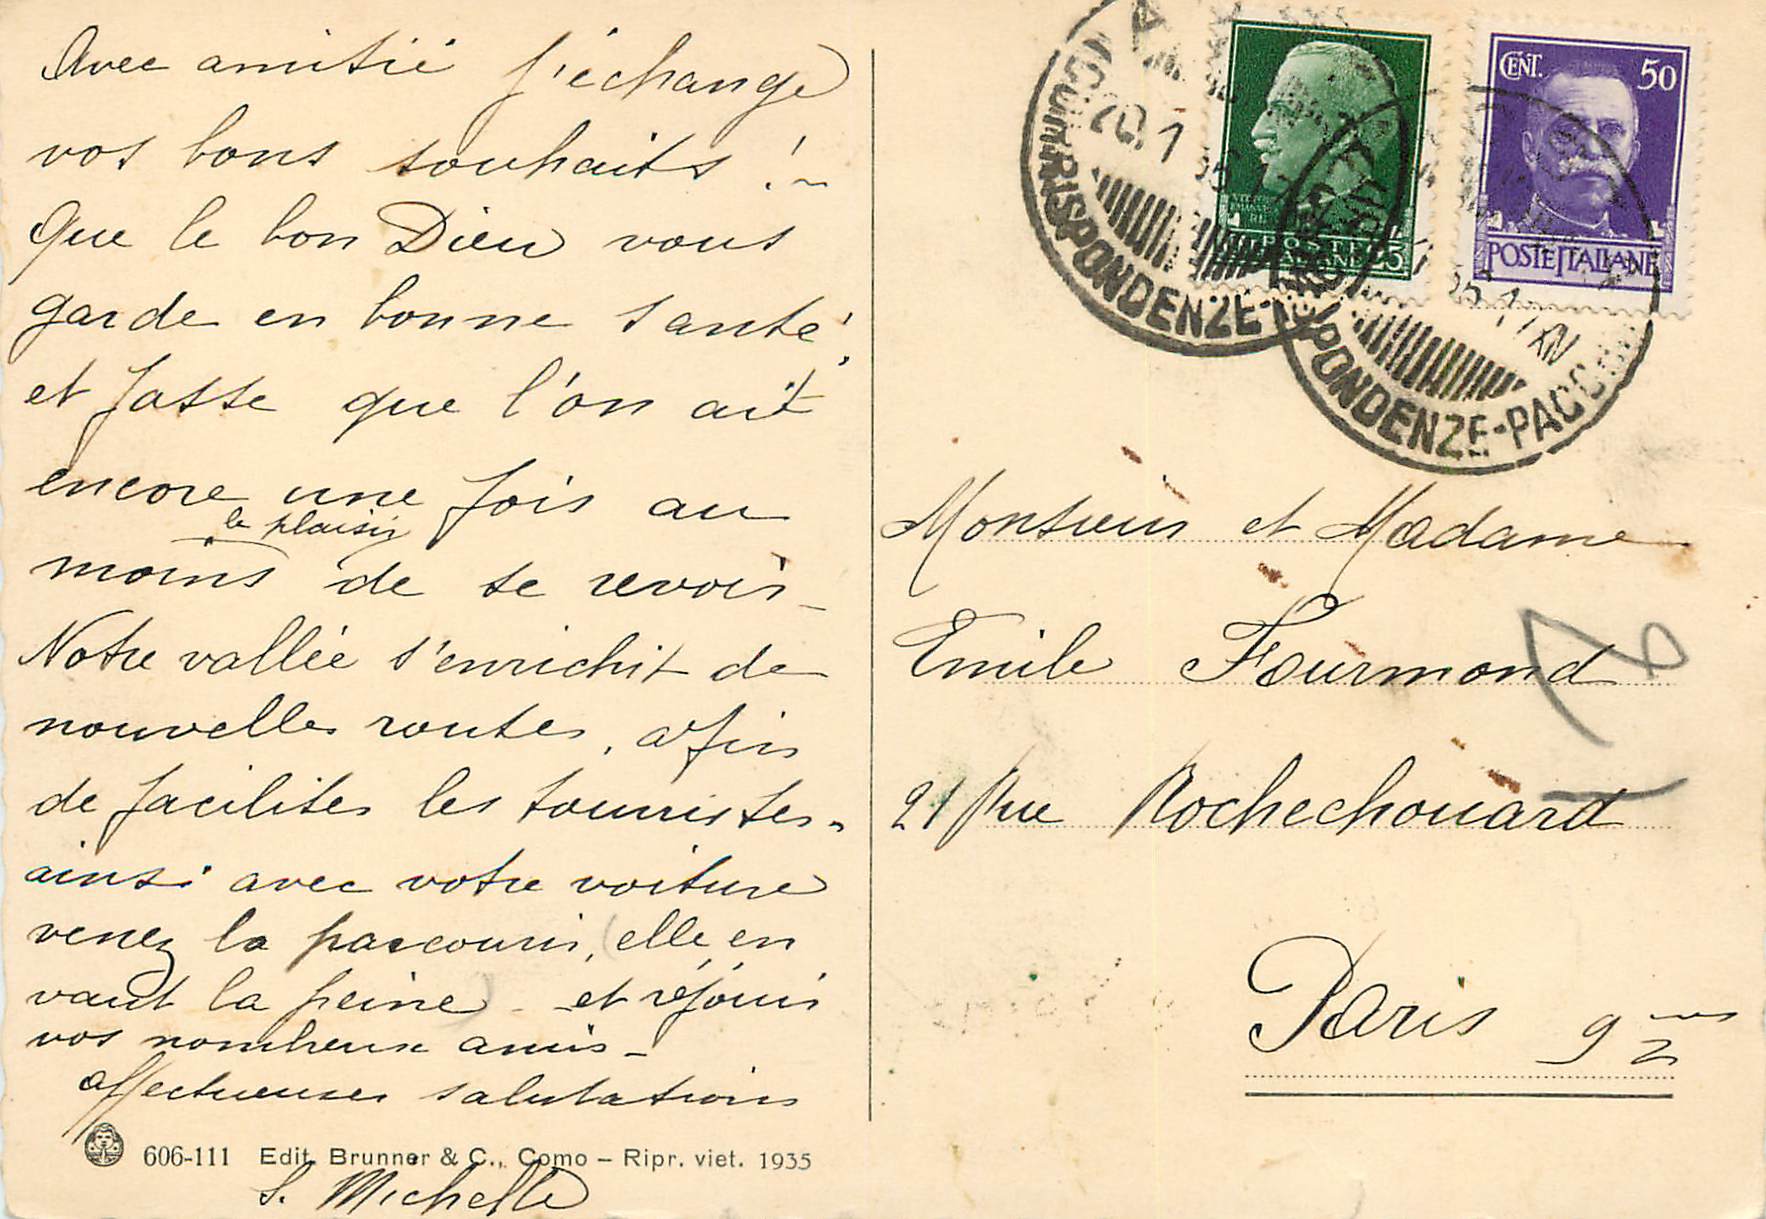 Avec amitié j'échange
vos bons souhaits !~
Que le bon Dieu vous
garde en bonne santé,
et fasse que l'on ait
encore une fois au
le plaisir
moins de se revoir_
Notre vallée s'enrichit de
nouvelles routes, afin
de faciliter les touristes_
ainsi avec votre voiture
venez la parcourir, elle en
vaut la peine - et réjouir
vos nombreux amis_
affectueuses salutations
606-111 Edit. Brunner & C., Como - Ripr. viet. 1935
S. Michelle
20.1
CORRISPONDENZE-
POSTE ITALIANE
CENT. 50
POSTE ITALIANE
XIV
PONDENZE-PACC
Monsieur et Madame
Emile Fourmond
21 Rue Rochechouard
Paris 9